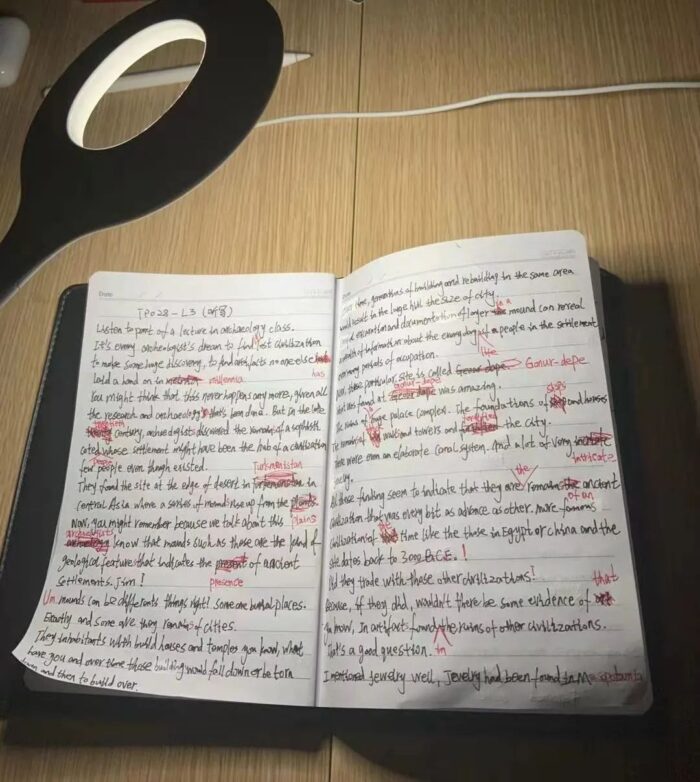 Date
TPO28-L3 (听写)
Listen to part of a lecture in archaeology class.
It's every archeologist's dream to find lost civilization
to make some huge discovery, to find artifacts no one else has
laid a hand on in millennia
You might think that this never happens any more, given all
the research and archaeology that's been done. But in the late
century, archaeologists discovered the of a sophisti
cated whose settlement might have been the hub of a civilization
few people even though existed.
They found the site at the edge of desert in Turkmenistan in
Central Asia where a series of mounds rise up from the plains
Now, you might remember because we talk about this
archaeologists know that mounds such as these are the kind of
geological feature that indicates the presence of ancient
settlements. Jim!
Um mounds can be differents things right! some are burial places.
Exactly and some are they remains of cities.
They inhabitants with build houses and temples you know, what
have you and over time those building would fall down or be torn
down and then to build over.
time, generations of building and rebuilding in the same area
would result in the huge hill the size of city.
excavation and documentation of layer in a mound can reveal
of information about the everyday life of a people in the settlement
many periods of ocupation.
Now, these particular site is called Gonur-depe
was found at Gonur-depe was amazing.
The ruins of huge palace complex. The foundations of shops and houses
The remains of walls and towers and fortified the city.
There were even an elaborate canal system. And a lot of very intricate
All these finding seem to indicate that they are the remains of an ancient
civilization that was every bit as advance as other more famous
civilization of the time like the those in Egypt or china and the
site dates back to 3000 B.C.E.!
Did they trade with those other civilizations!
Because, if they did, wouldn't there be some evidence of that
You know, In artifact found in the ruins of other civilizations.
That's a good question.
I mentioned jewelry well, Jewelry had been found in Mesopotamia